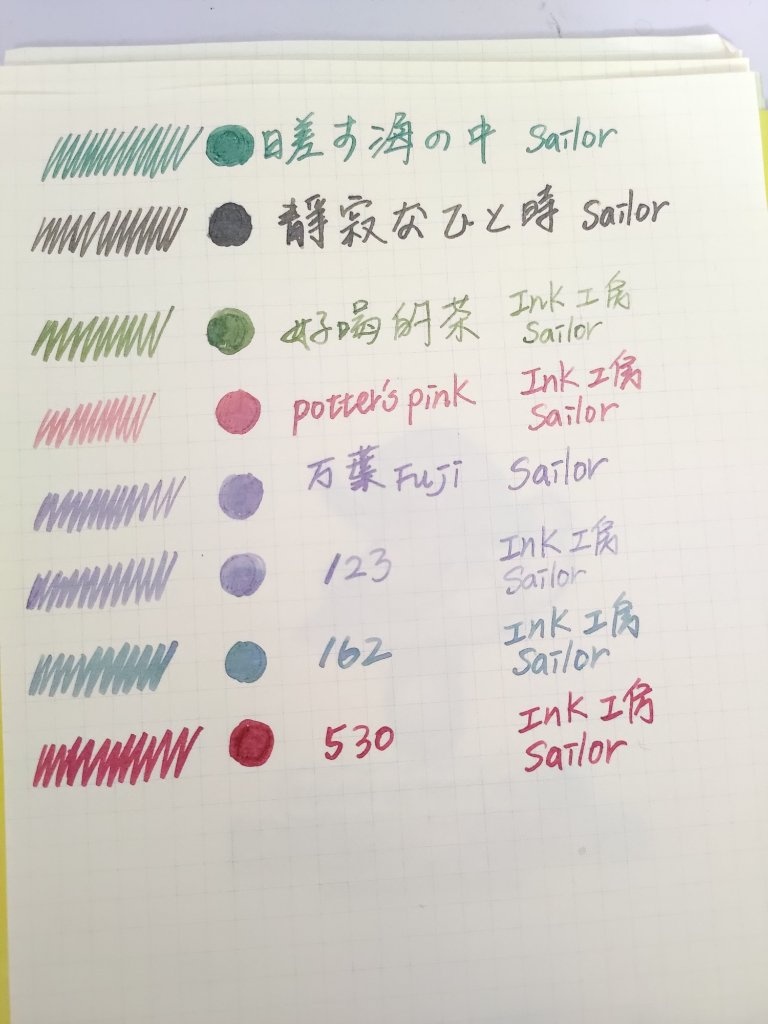 日差す海の中 Sailor
静寂なひと時 Sailor
好喝的茶 Ink 工房
Sailor
potter's pink Ink 工房
Sailor
万葉 Fuji Sailor
123 Ink 工房
Sailor
162 Ink 工房
Sailor
530 Ink 工房
Sailor